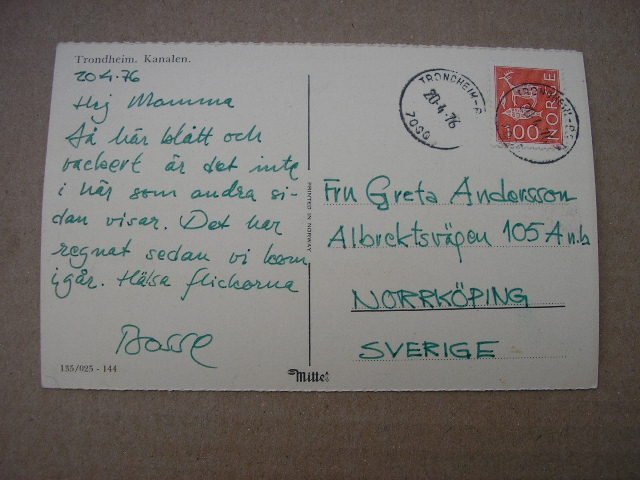 Trondheim. Kanalen.
20.4.76
Hej Mamma
Så här blått och
vackert är det inte
i här som andra si-
dan visar. Det har
regnat sedan vi kom
igår. Hälsa flickorna
Bosse
135/025 - 144
PRINTED IN NORWAY
Mittet
TRONDHEIM
20.4.76
7000
TRONDHEIM
NORGE
100
Fru Greta Andersson
Albrektsvägen 105A n.b
NORRKÖPING
SVERIGE